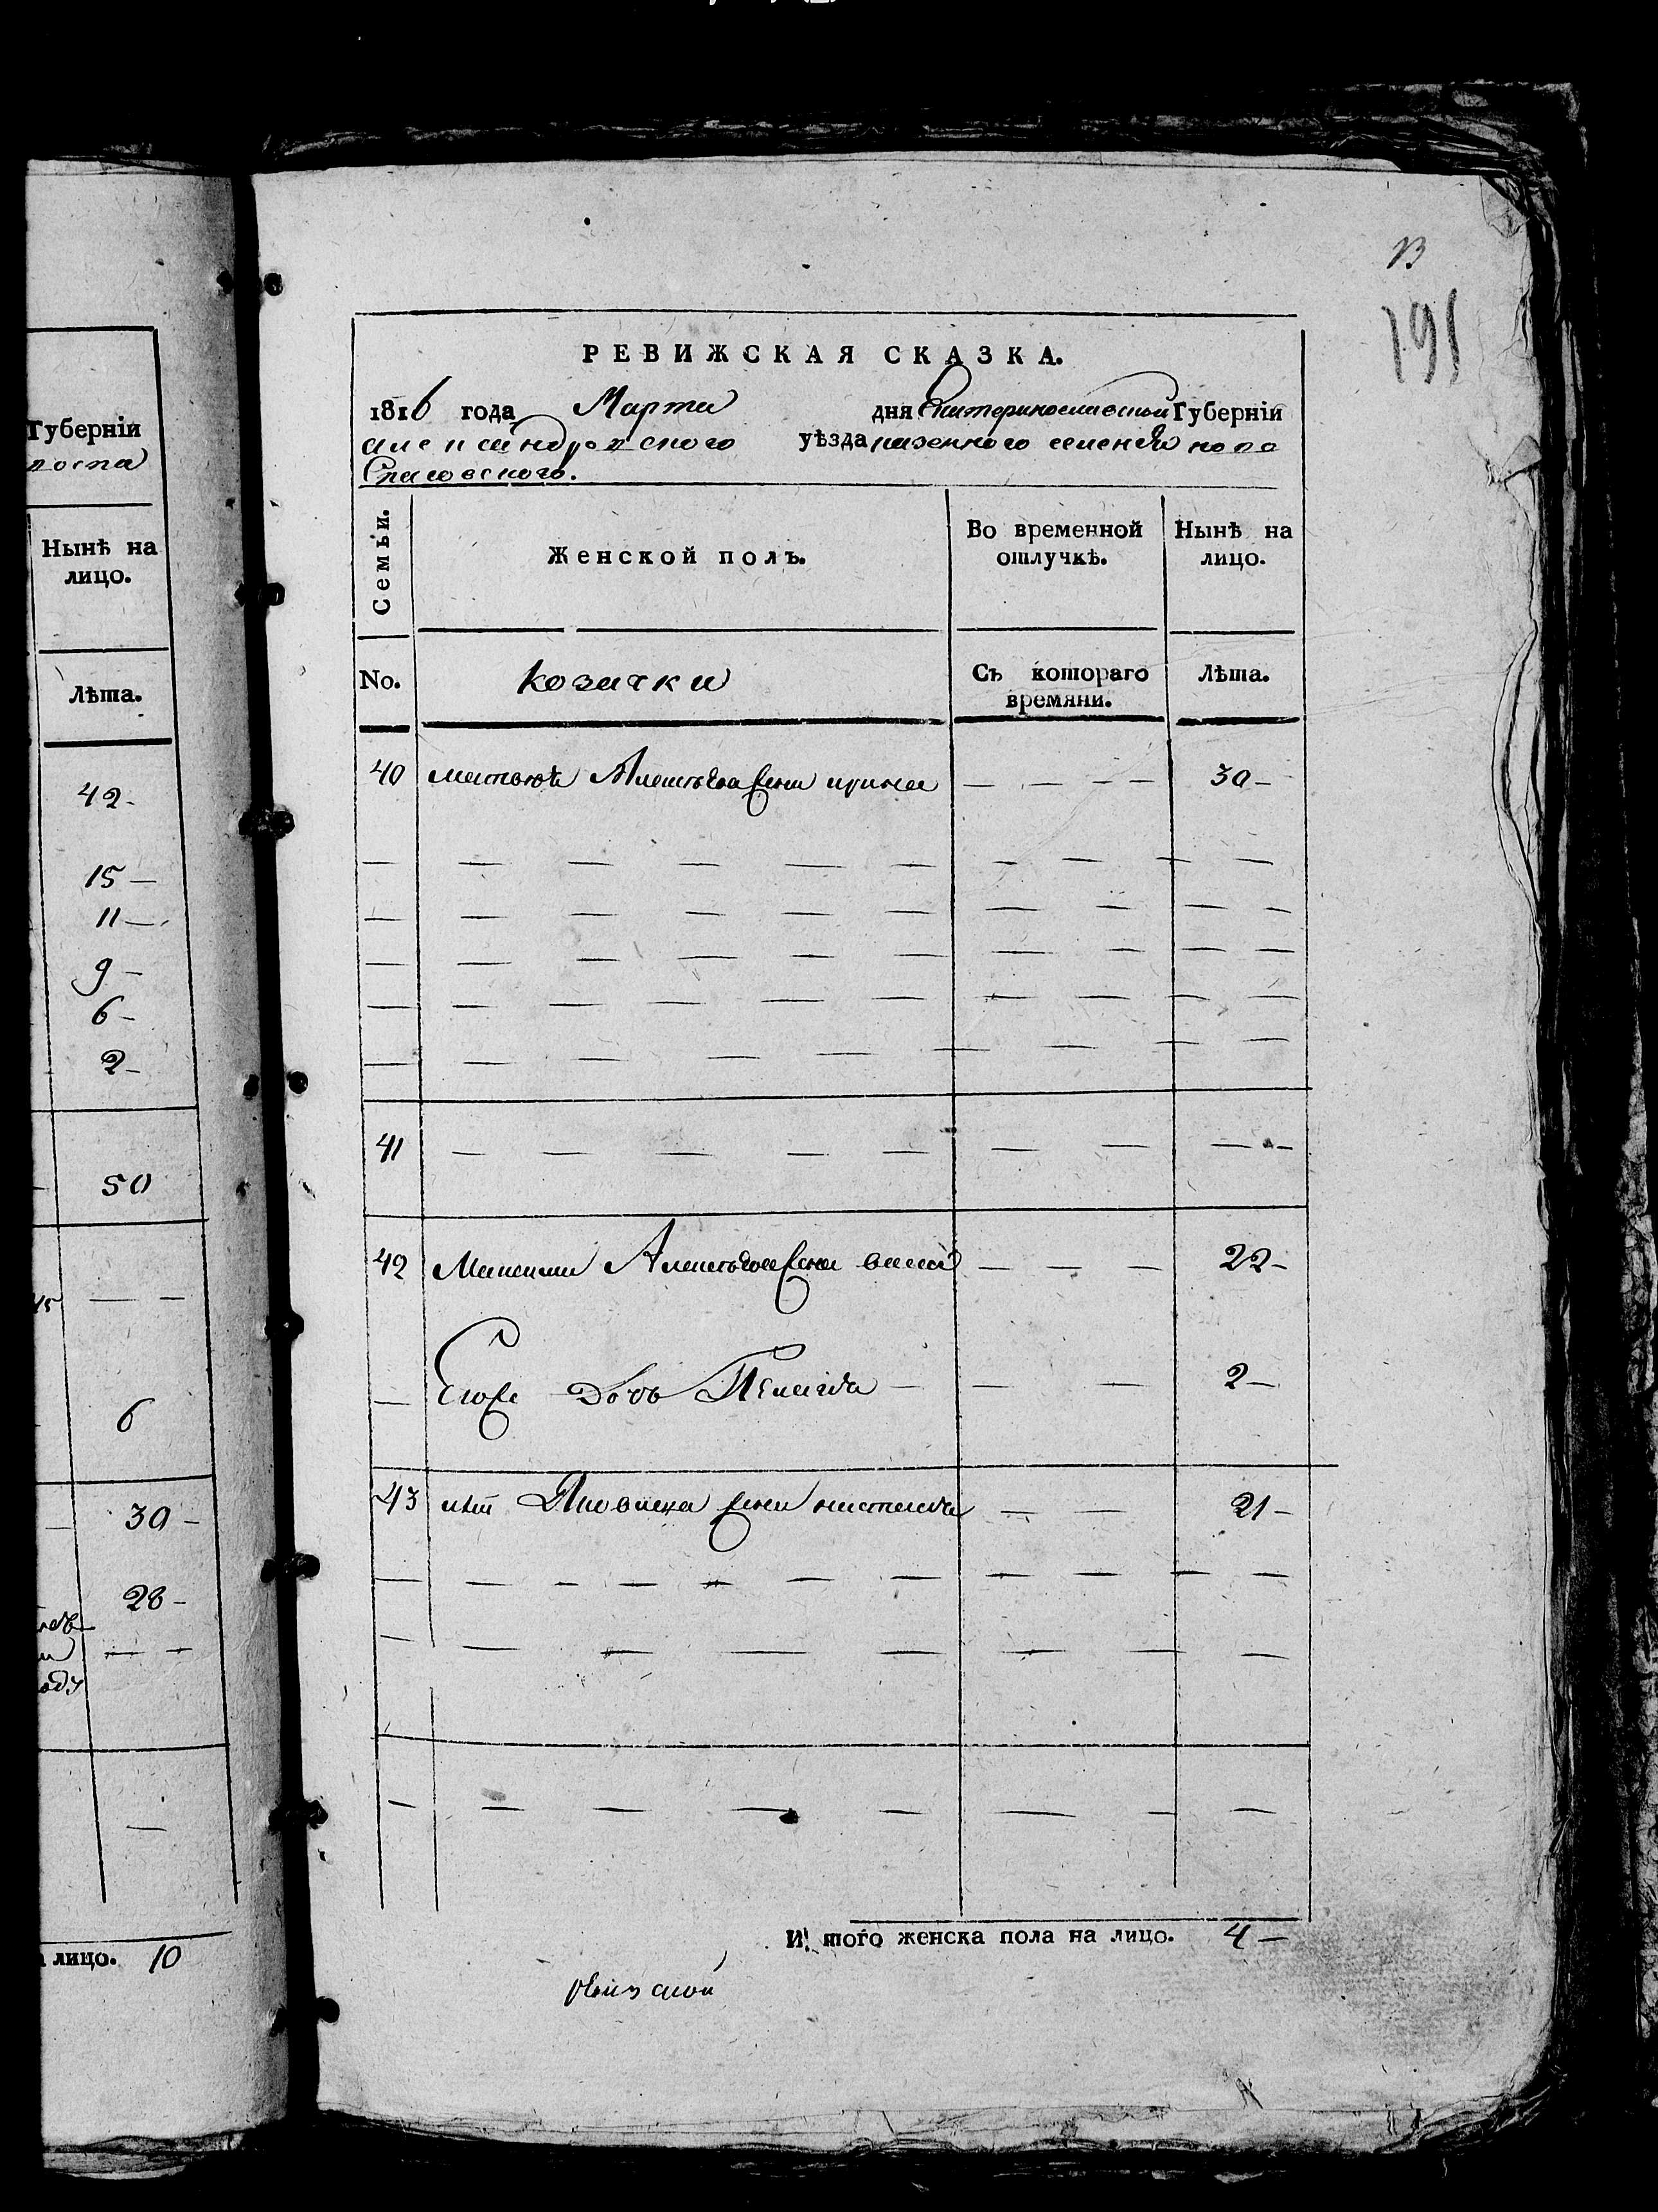 13
191
Губерніи
Нынѣ на
лицо.
Лѣта.
42-
15-
11-
9-
6-
2-
50
6
30-
28-
лицо. 10
РЕВИЖСКАЯ СКАЗКА.
1816 года Марта дня Екатеринославской Губерніи
Александровского уѣзда казенного селения ново
Спасовского.
Семьи.
Женской полъ.
Во временной
отлучкѣ.
Нынѣ на
лицо.
No.
козачки
Съ котораго
времяни.
Лѣта.
40 Алексѣева жена ирина — — — — 30-
41 — — — — — — — — —
42 Максима Алексѣева жена — — — 22-
Его дочь Пелагия — — — 2-
43 жена наталия — — 21-
И того женска пола на лицо. 4-